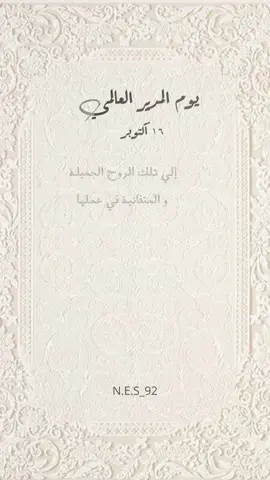 يوم المدير العالمي
١٦ أكتوبر
إلي تلك الروح الجميلة
و المتفانية في عملها
N.E.S_92